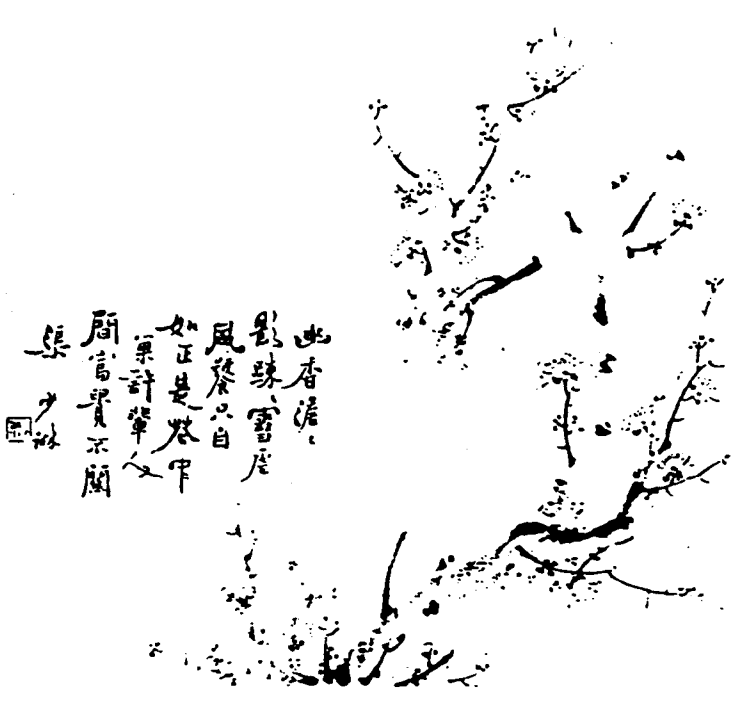 幽香澹〻
影疎〻雪虐
風饕只自
如正是花中
巢許輩人
間富貴不關
渠 少